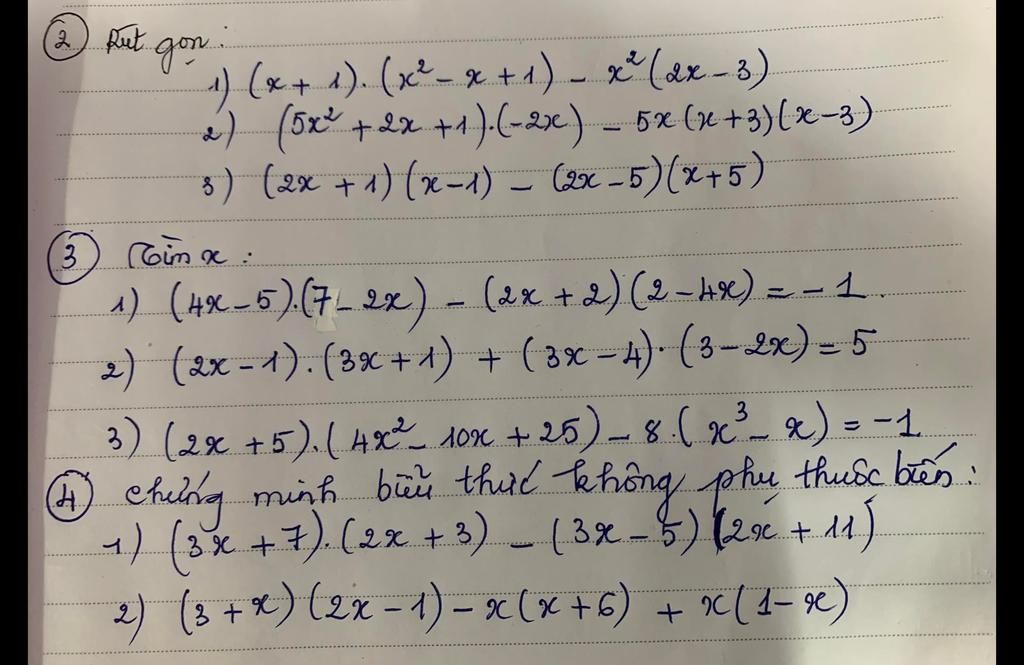 ② Rút gọn :
1) (x + 1).(x² - x + 1) - x²(2x - 3)
2) (5x² + 2x + 1).(-2x) - 5x(x+3)(x-3)
3) (2x + 1)(x-1) - (2x-5)(x+5)
③ Tìm x :
1) (4x-5).(7-2x) - (2x+2)(2-4x) = -1.
2) (2x-1).(3x+1) + (3x-4).(3-2x) = 5
3) (2x+5).(4x² - 10x + 25) - 8.(x³ - x) = -1
④ chứng minh biểu thức không phụ thuộc biến :
1) (3x+7).(2x+3) - (3x-5)(2x+11)
2) (3+x)(2x-1) - x(x+6) + x(1-x)